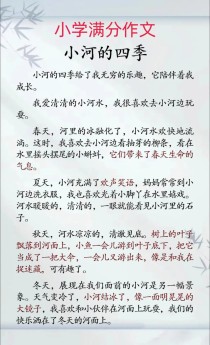 小学满分作文
小河的四季
小河的四季给了我无穷的乐趣，它陪伴着我
成长。
我爱清清的小河水，我很喜欢去小河边玩
耍。
春天，河里的冰融化了，小河水欢快地流
淌。这时，我喜欢去小河边看抽芽的柳条，看在
水里摇头摆尾的小蝌蚪，它们带来了春天生命的
气息。
夏天，小河充满了欢声笑语，妈妈常常到小
河边洗衣服，我也喜欢光着小脚丫在水里嬉戏。
河水暖暖的，清清的，一眼就能看见小河里的石
子。
秋天，河水凉凉的，清澈见底。树上的叶子
飘落到河面上，小鱼一会儿游到叶子底下，把它
当成了一把大伞，一会儿又游出来，像是和我在
捉迷藏。可有趣了。
冬天，展现在我们面前的小河是另一幅景
象。天气变冷了，小河结冰了，像一面明晃晃的
大镜子，我喜欢和小伙伴在河面上玩耍，我们的
快乐洒在了冬天的河面上。